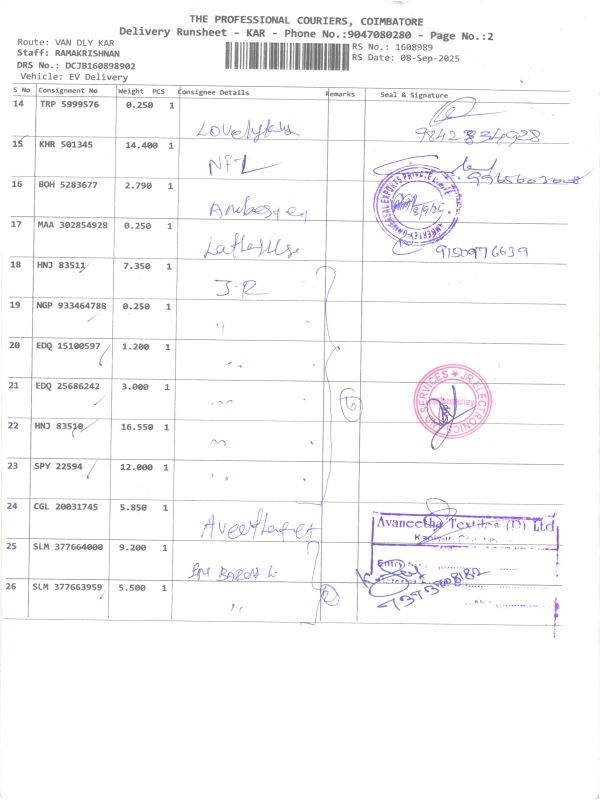 THE PROFESSIONAL COURIERS, COIMBATORE
Delivery Runsheet - KAR - Phone No.:9047080280 - Page No.:2
Route: VAN DLY KAR
Staff: RAMAKRISHNAN
DRS No.: DCJB160898902
Vehicle: EV Delivery
RS No.: 1608989
RS Date: 08-Sep-2025
S No Consignment No Weight PCS Consignee Details Remarks Seal & Signature
14 TRP 5999576 0.250 1
98428 34928
15 KHR 501345 14.400 1 NFL
16 BOH 5283677 2.790 1
17 MAA 302854928 0.250 1
9150976639
18 HNJ 83511 7.350 1 J.R
19 NGP 933464788 0.250 1 "
20 EDQ 15100597 1.200 1 "
21 EDQ 25686242 3.000 1 " 6
JR ELECTRONICS
SERVICES
22 HNJ 83510 16.550 1 "
23 SPY 22594 12.000 1 "
24 CGL 20031745 5.850 1
Avaneetha Textiles (P) Ltd
25 SLM 377664000 9.200 1
Entry
26 SLM 377663959 5.500 1 " 2